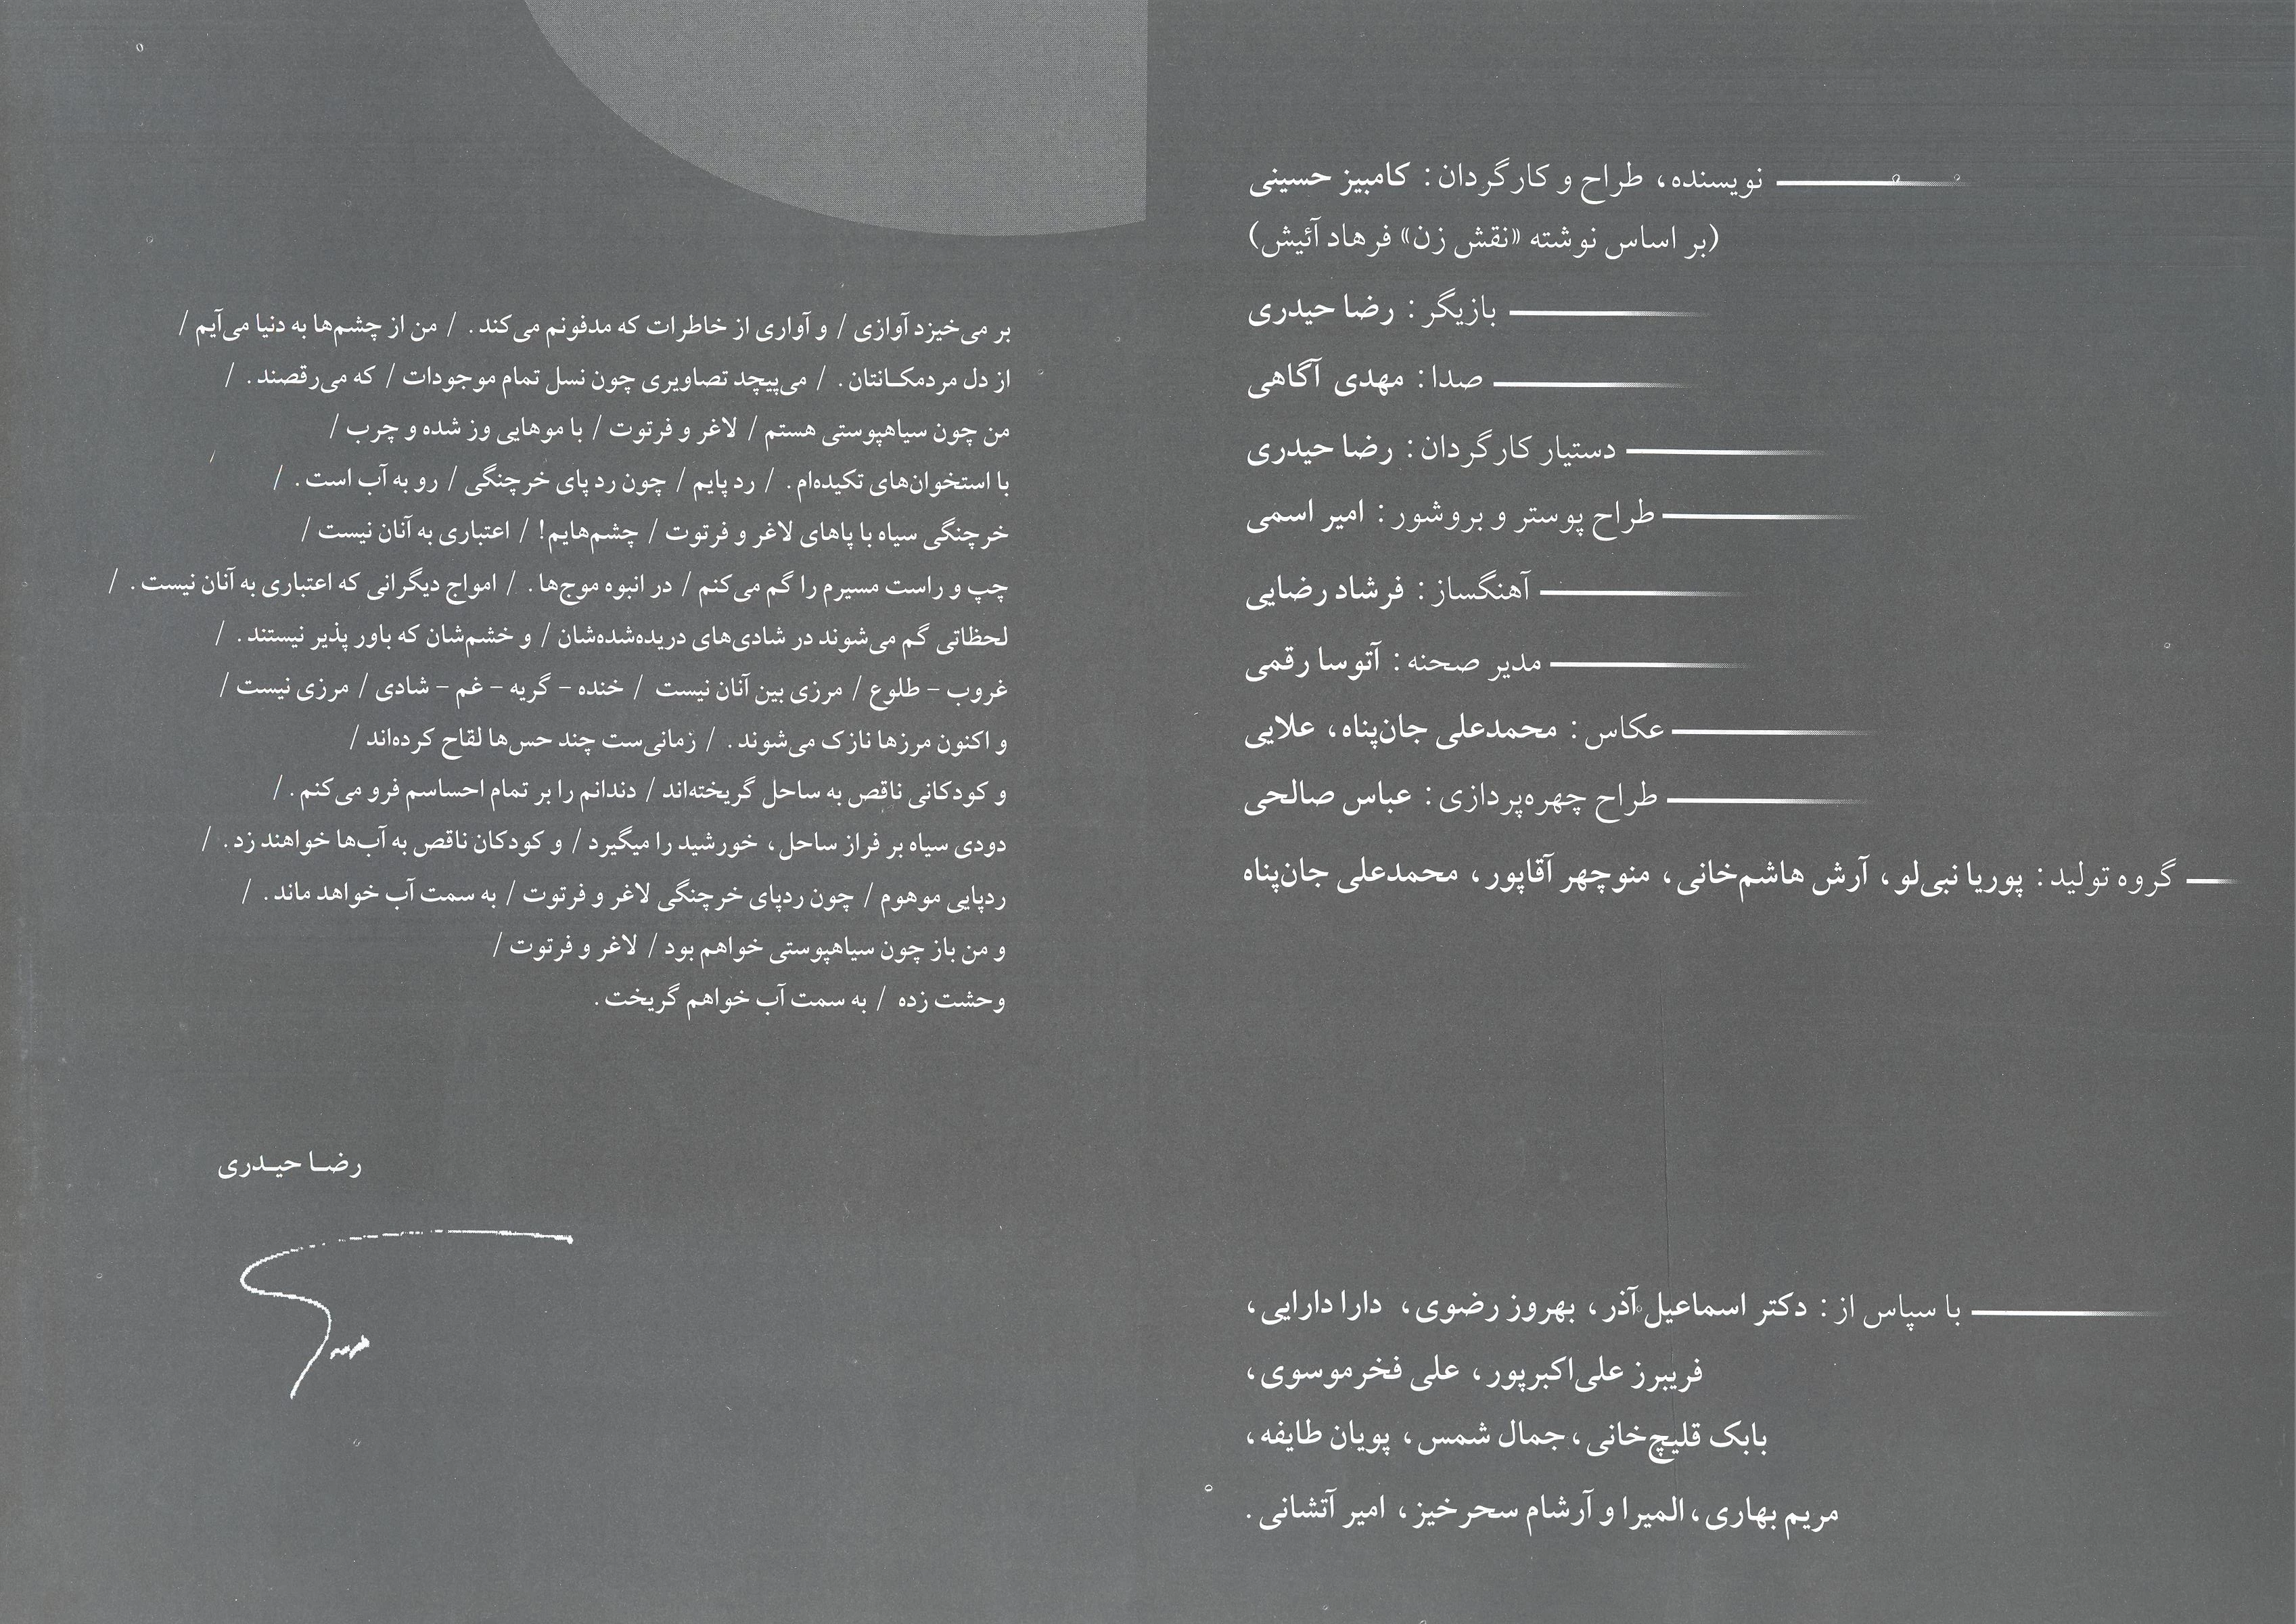 نویسنده، طراح و کارگردان : کامبیز حسینی
(بر اساس نوشته «نقش زن» فرهاد آئیش)
بازیگر : رضا حیدری
صدا : مهدی آگاهی
دستیار کارگردان : رضا حیدری
طراح پوستر و بروشور : امیر اسمی
آهنگساز : فرشاد رضایی
مدیر صحنه : آتوسا رقمی
عکاس : محمدعلی جان‌پناه، علایی
طراح چهره‌پردازی : عباس صالحی
گروه تولید : پوریا نبی‌لو، آرش هاشم‌خانی، منوچهر آقاپور، محمدعلی جان‌پناه
با سپاس از : دکتر اسماعیل آذر، بهروز رضوی، دارا دارایی،
فریبرز علی‌اکبرپور، علی فخرموسوی،
بابک قلیچ‌خانی، جمال شمس، پویان طایفه،
مریم بهاری، المیرا و آرشام سحرخیز، امیر آتشانی.
بر می‌خیزد آوازی / و آواری از خاطرات که مدفونم می‌کند. / من از چشم‌ها به دنیا می‌آیم /
از دل مردمکانتان. / می‌پیچد تصاویری چون نسل تمام موجودات / که می‌رقصند. /
من چون سیاهپوستی هستم / لاغر و فرتوت / با موهایی وز شده و چرب /
با استخوان‌های تکیده‌ام. / رد پایم / چون رد پای خرچنگی / رو به آب است. /
خرچنگی سیاه با پاهای لاغر و فرتوت / چشم‌هایم! / اعتباری به آنان نیست /
چپ و راست مسیرم را گم می‌کنم / در انبوه موج‌ها. / امواج دیگرانی که اعتباری به آنان نیست. /
لحظاتی گم می‌شوند در شادی‌های دریده‌شده‌شان / و خشم‌شان که باور پذیر نیستند. /
غروب - طلوع / مرزی بین آنان نیست / خنده - گریه - غم - شادی / مرزی نیست /
و اکنون مرزها نازک می‌شوند. / زمانی‌ست چند حس‌ها لقاح کرده‌اند /
و کودکانی ناقص به ساحل گریخته‌اند / دندانم را بر تمام احساسم فرو می‌کنم. /
دودی سیاه بر فراز ساحل، خورشید را میگیرد / و کودکان ناقص به آب‌ها خواهند زد. /
ردپایی موهوم / چون ردپای خرچنگی لاغر و فرتوت / به سمت آب خواهد ماند. /
و من باز چون سیاهپوستی خواهم بود / لاغر و فرتوت /
وحشت زده / به سمت آب خواهم گریخت.
رضا حیدری